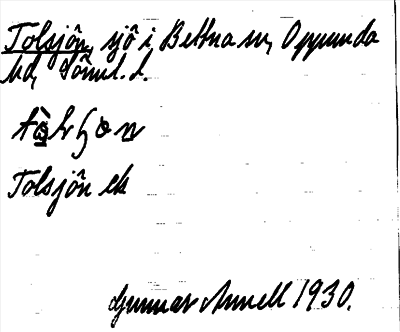 Tolsjön, sjö i Bettna sn, Oppunda
hd, Söml. l.
Tolsjön ek
Gunnar Annell 1930.